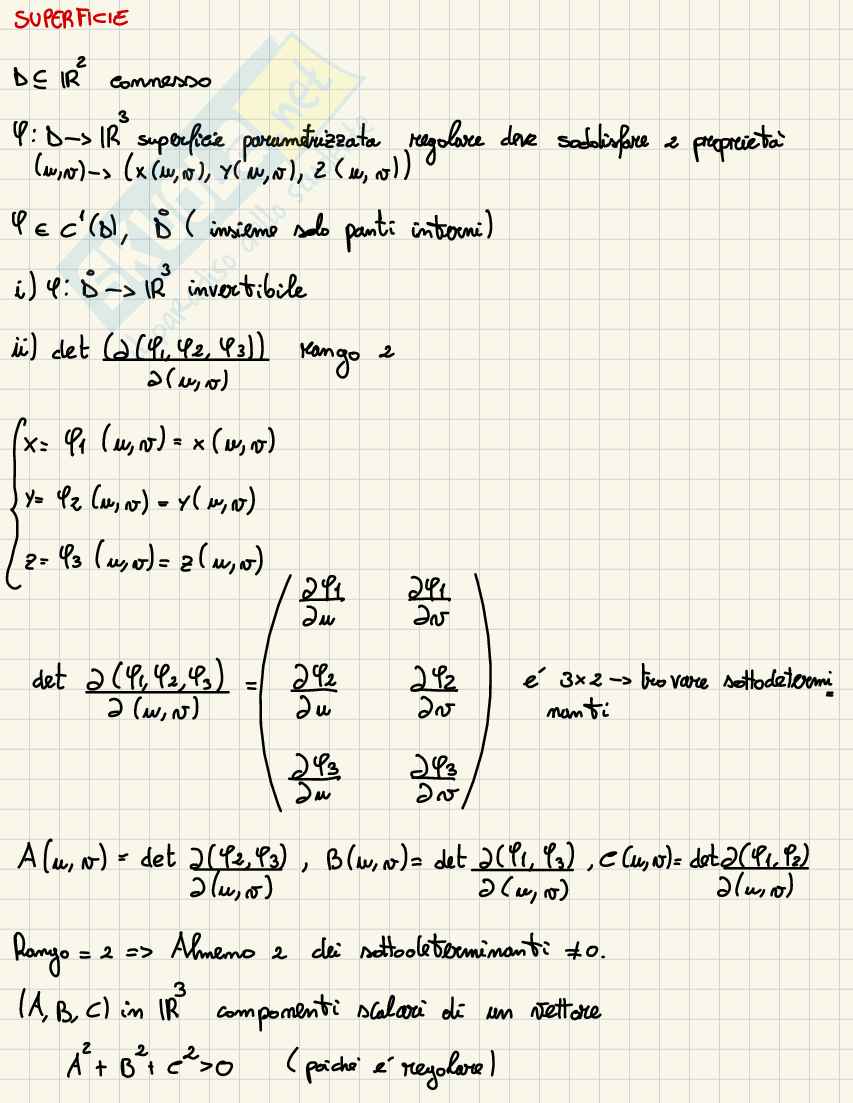 SUPERFICIE
D ⊆ ℝ² connesso
φ: D → ℝ³ superficie parametrizzata regolare deve soddisfare 2 proprietà
(u,v) → (x(u,v), y(u,v), z(u,v))
φ ∈ C¹(D), D̊ (insieme solo punti interni)
i) φ: D̊ → ℝ³ invertibile
ii) det (∂(φ₁, φ₂, φ₃))/∂(u,v) rango 2
x = φ₁ (u,v) = x(u,v)
y = φ₂ (u,v) = y(u,v)
z = φ₃ (u,v) = z(u,v)
det ∂(φ₁,φ₂,φ₃)/∂(u,v) = ( ∂φ₁/∂u ∂φ₁/∂v
∂φ₂/∂u ∂φ₂/∂v
∂φ₃/∂u ∂φ₃/∂v ) é 3×2 → trovare sottodetermi
nanti
A(u,v) = det ∂(φ₂,φ₃)/∂(u,v), B(u,v) = det ∂(φ₁,φ₃)/∂(u,v), C(u,v) = det ∂(φ₁,φ₂)/∂(u,v)
Rango = 2 => Almeno 2 dei sottodeterminanti ≠ 0.
(A, B, C) in ℝ³ componenti scalari di un vettore
A² + B² + C² > 0 (poiché é regolare)